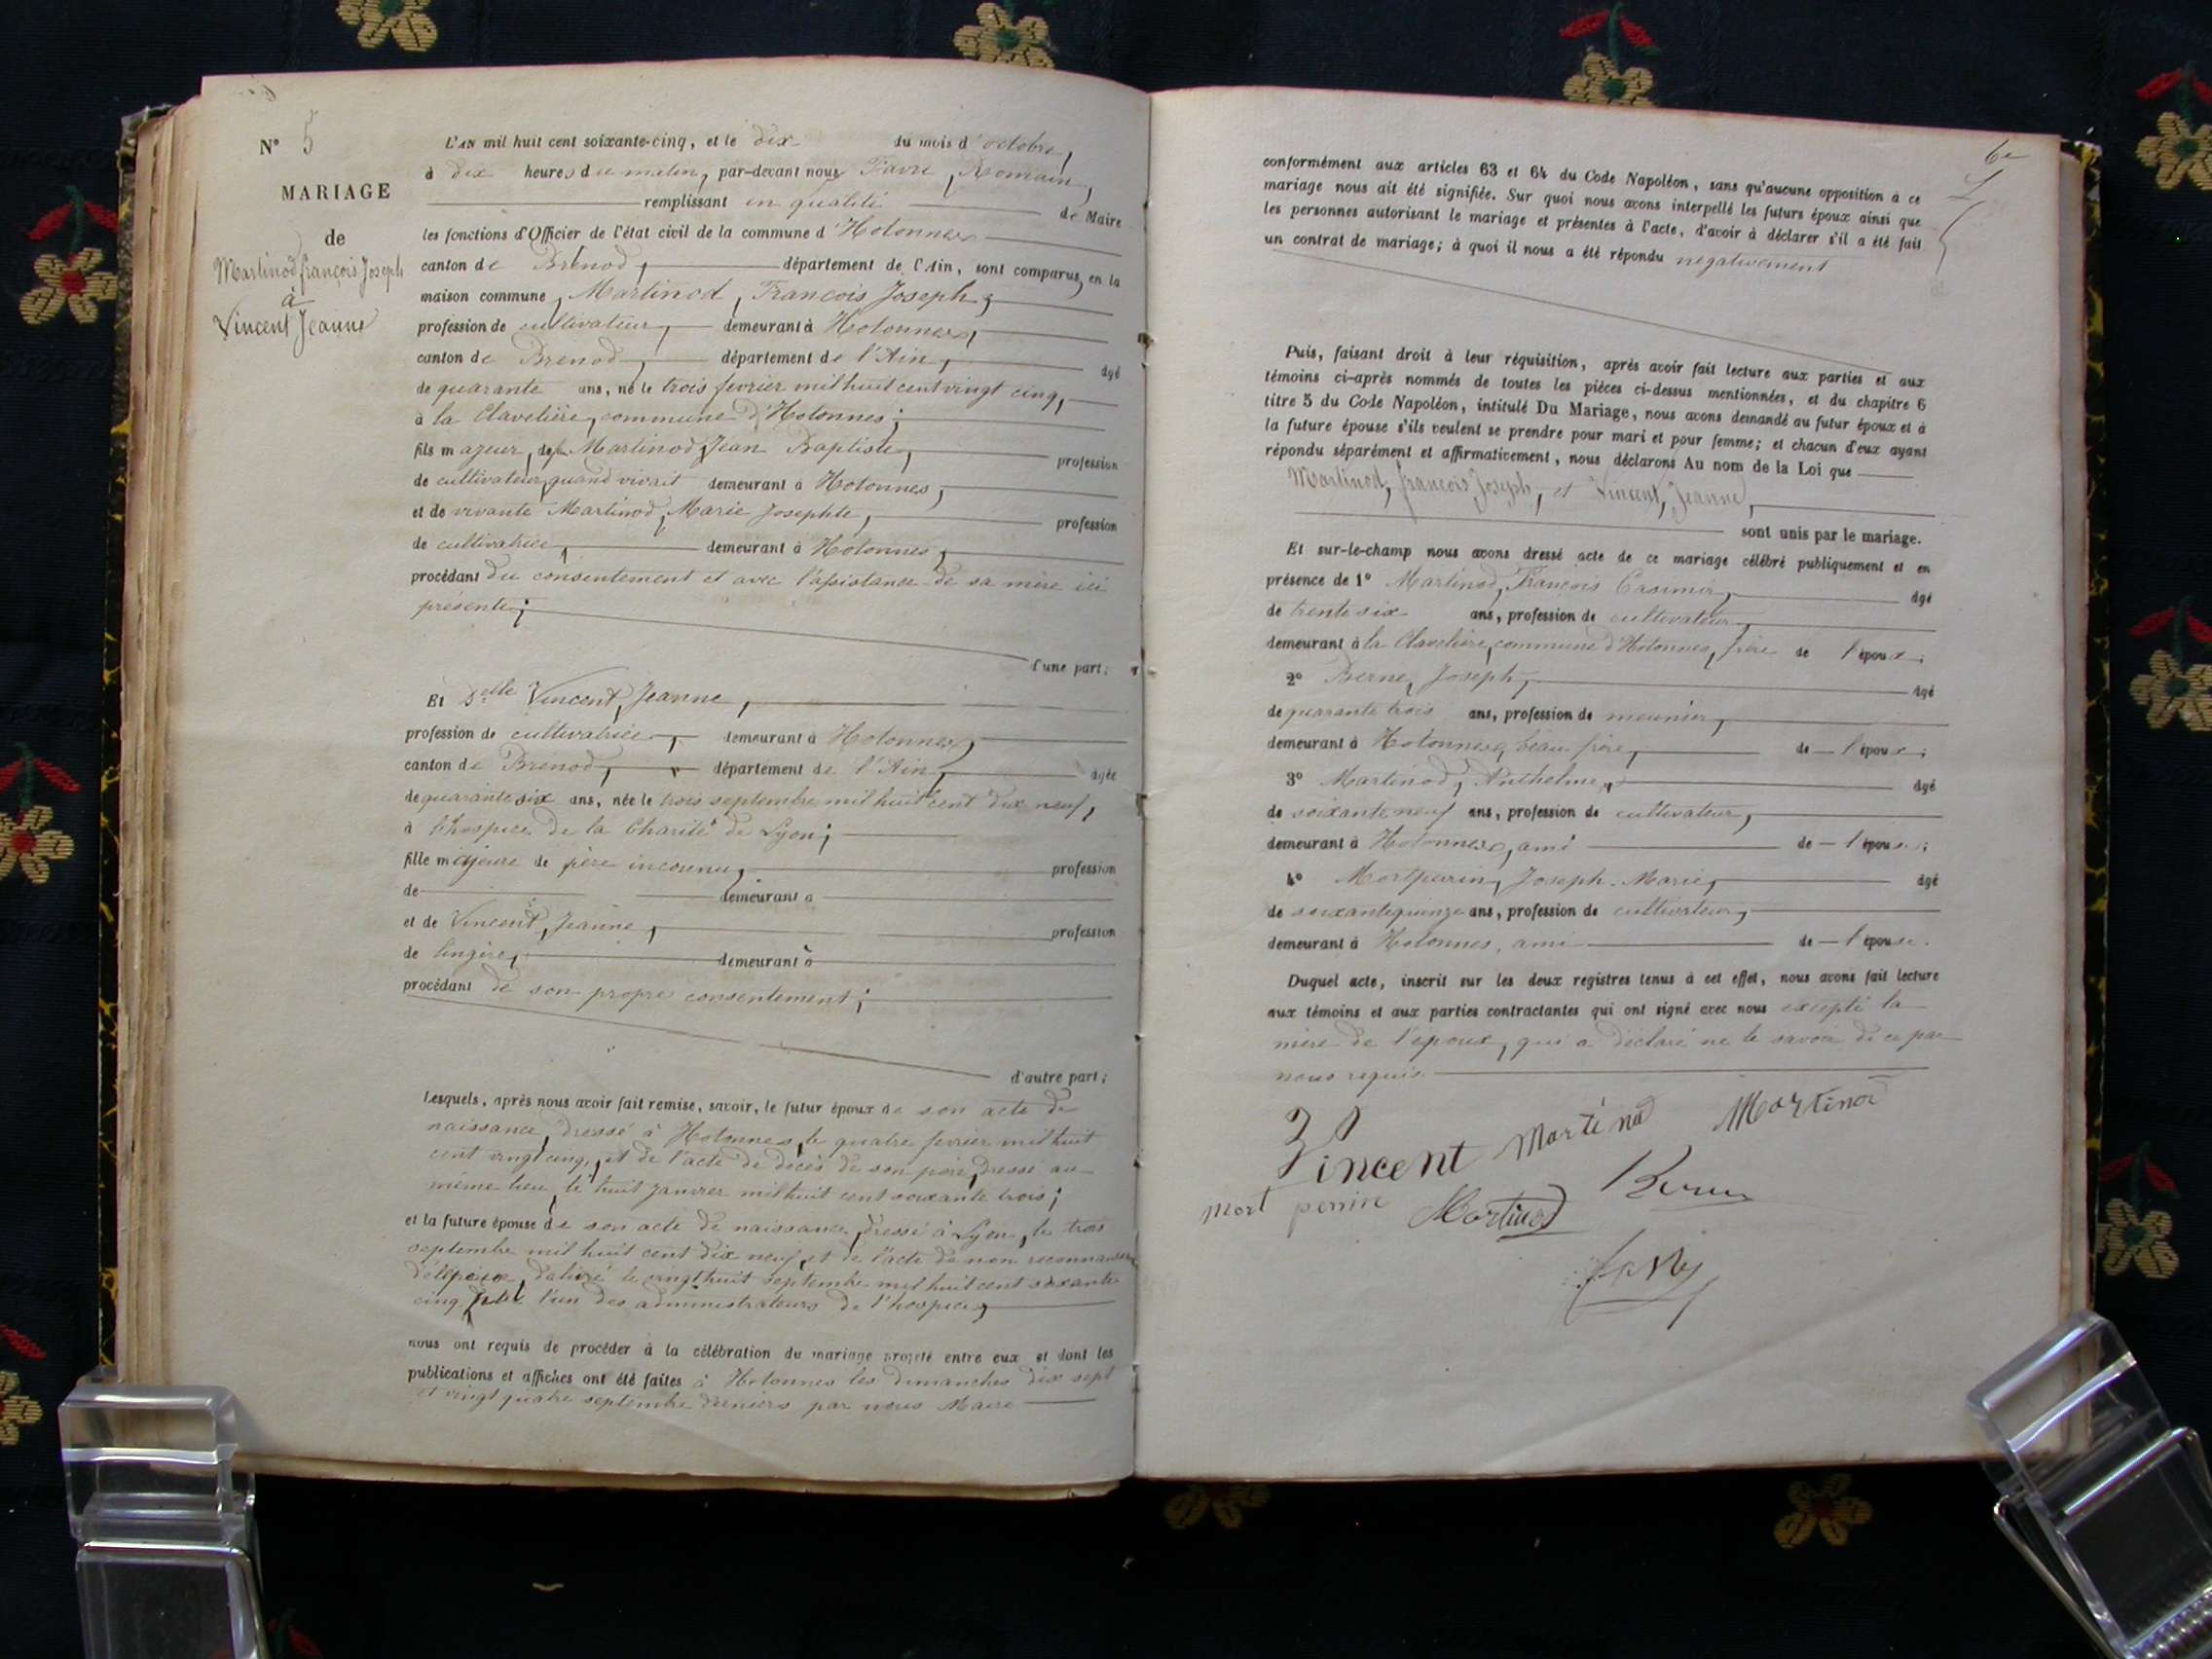 N° 5
MARIAGE
de
Martinod françois Joseph
à
Vincent Jeanne
L'AN mil huit cent soixante-cinq, et le dix du mois d'octobre,
à dix heures du matin, par-devant nous Favre, Romain,
remplissant en qualité de Maire
les fonctions d'Officier de l'état civil de la commune d'Hotonnes
canton de Brénod, département de l'Ain, sont comparus, en la
maison commune, Martinod, François Joseph,
profession de cultivateur, demeurant à Hotonnes,
canton de Brenod, département de l'Ain, âgé
de quarante ans, né le trois fevrier mil huit cent vingt cinq,
à la Clavelière, commune d'Hotonnes;
fils majeur, de Martinod Jean Baptiste, profession
de cultivateur, quand vivait demeurant à Hotonnes,
et de vivante Martinod, Marie Josephte, profession
de cultivatrice, demeurant à Hotonnes,
procédant du consentement et avec l'assistance de sa mère ici
présente;
d'une part;
Et Delle Vincent, Jeanne,
profession de cultivatrice, demeurant à Hotonnes,
canton de Brénod, département de l'Ain, âgée
de quarante six ans, née le trois septembre mil huit cent dix neuf,
à l'hospice de la Charité de Lyon;
fille majeure de père inconnu, profession
de demeurant à
et de Vincent, Jeanne, profession
de lingère, demeurant à
procédant de son propre consentement;
d'autre part;
Lesquels, après nous avoir fait remise, savoir, le futur époux de son acte de
naissance, dressé à Hotonnes, le quatre fevrier mil huit
cent vingt cinq, et de l'acte de décès de son père, dressé au
même lieu, le huit janvier mil huit cent soixante trois;
et la future épouse de son acte de naissance, dressé à Lyon, le trois
septembre mil huit cent dix neuf, et de l'acte de non reconnaissance
délivré le vingt huit septembre mil huit cent soixante
cinq l'un des administrateurs de l'hospice,
nous ont requis de procéder à la célébration du mariage projeté entre eux et dont les
publications et affiches ont été faites à Hotonnes les dimanches dix sept
et vingt quatre septembre derniers par nous Maire
conformément aux articles 63 et 64 du Code Napoléon, sans qu'aucune opposition à ce
mariage nous ait été signifiée. Sur quoi nous avons interpellé les futurs époux ainsi que
les personnes autorisant le mariage et présentes à l'acte, d'avoir à déclarer s'il a été fait
un contrat de mariage; à quoi il nous a été répondu négativement
Puis, faisant droit à leur réquisition, après avoir fait lecture aux parties et aux
témoins ci-après nommés de toutes les pièces ci-dessus mentionnées, et du chapitre 6
titre 5 du Code Napoléon, intitulé Du Mariage, nous avons demandé au futur époux et à
la future épouse s'ils veulent se prendre pour mari et pour femme; et chacun d'eux ayant
répondu séparément et affirmativement, nous déclarons Au nom de la Loi que
Martinod, françois Joseph, et Vincent, Jeanne,
sont unis par le mariage.
Et sur-le-champ nous avons dressé acte de ce mariage célébré publiquement et en
présence de 1° Martinod, François Casimir, âgé
de trente six ans, profession de cultivateur,
demeurant à la Clavelière, commune d'Hotonnes, frère de l'époux;
2° Berne, Joseph, âgé
de quarante trois ans, profession de meunier,
demeurant à Hotonnes, beau frère, de l'époux;
3° Martinod, Anthelme, âgé
de soixante neuf ans, profession de cultivateur,
demeurant à Hotonnes, ami de l'épouse;
4° Mortperrin, Joseph-Marie, âgé
de soixante quinze ans, profession de cultivateur,
demeurant à Hotonnes, ami de l'épouse.
Duquel acte, inscrit sur les deux registres tenus à cet effet, nous avons fait lecture
aux témoins et aux parties contractantes qui ont signé avec nous excepté la
mère de l'époux, qui a déclaré ne le savoir de ce par
nous requis.
Vincent Martinod Martinod
Mort perrin Martinod Berne